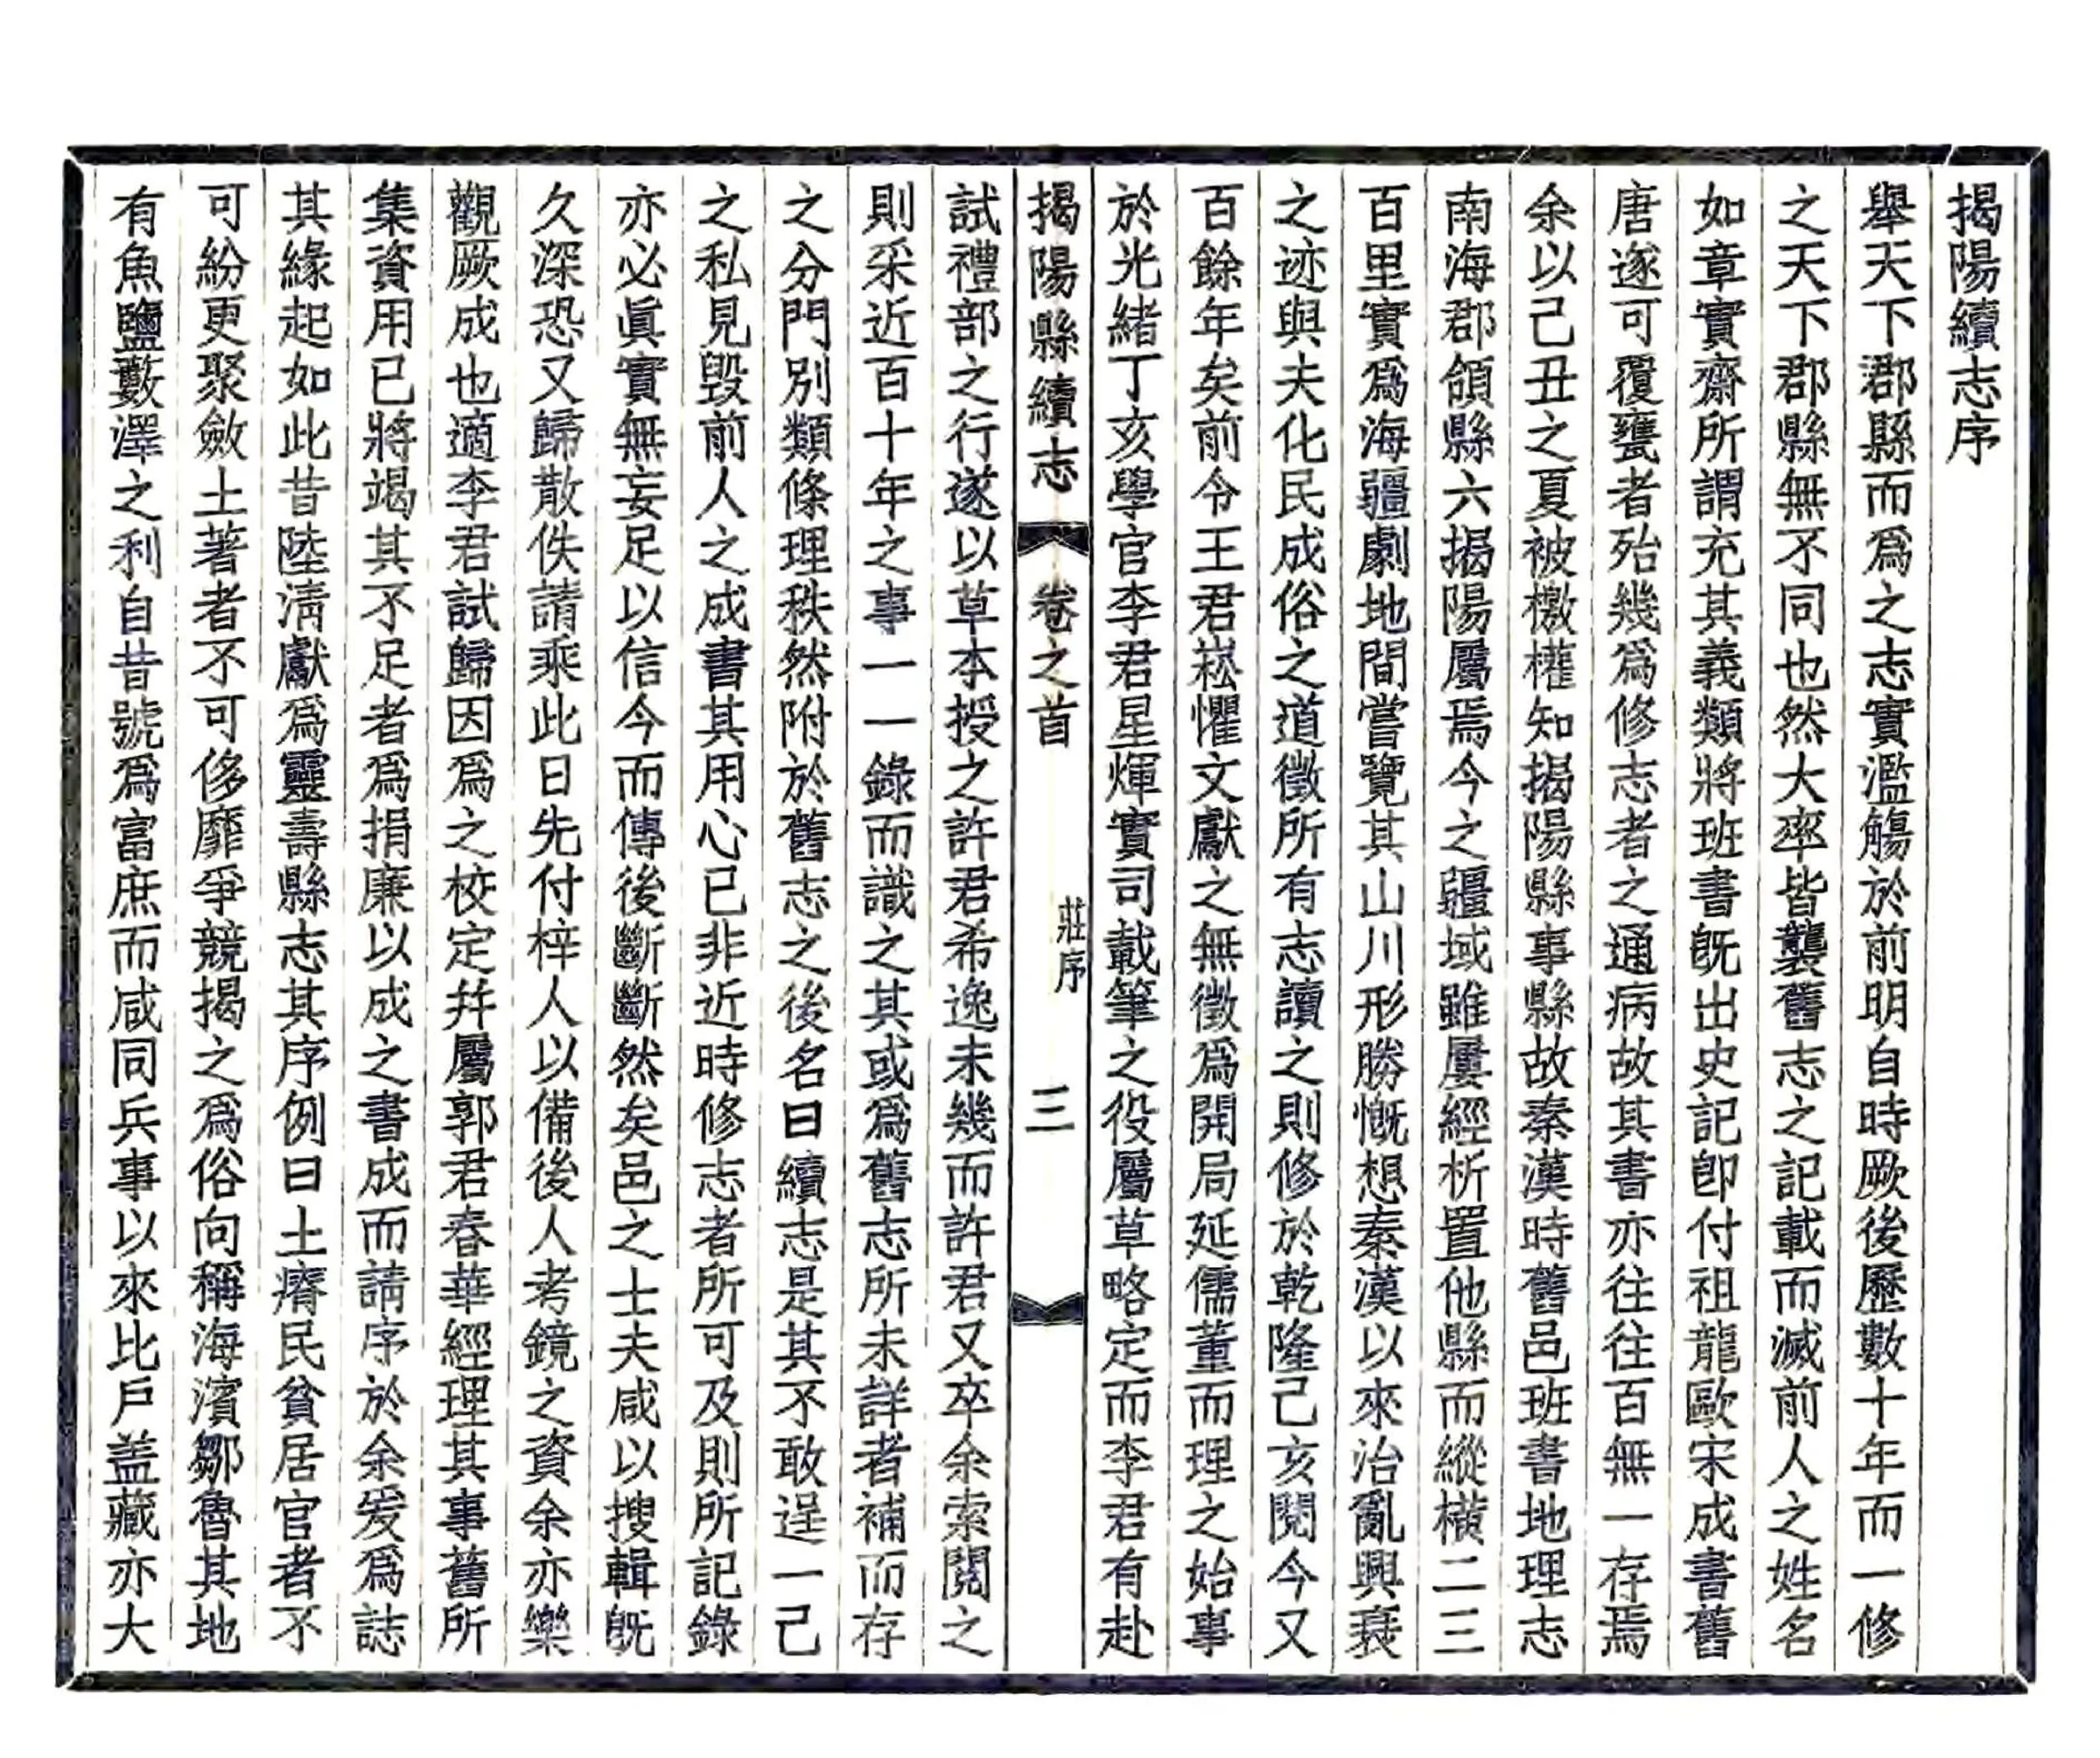 揭陽續志序
舉天下郡縣而爲之志實濫觴於前明自時厥後歷數十年而一修
之天下郡縣無不同也然大率皆襲舊志之記載而滅前人之姓名
如章實齋所謂充其義類將班書旣出史記卽付祖龍歐宋成書舊
唐遂可覆甕者殆幾爲修志者之通病故其書亦往往百無一存焉
余以己丑之夏被檄權知揭陽縣事縣故秦漢時舊邑班書地理志
南海郡領縣六揭陽屬焉今之疆域雖屢經析置他縣而縱橫二三
百里實爲海疆劇地間嘗覽其山川形勝慨想秦漢以來治亂興衰
之迹與夫化民成俗之道徵所有志讀之則修於乾隆己亥閱今又
百餘年矣前令王君崧懼文獻之無徵爲開局延儒董而理之始事
於光緒丁亥學官李君星煇實司載筆之役屬草略定而李君有赴
揭陽縣續志 卷之首 莊序 三
試禮部之行遂以草本授之許君希逸未幾而許君又卒余索閱之
則采近百十年之事一一錄而識之其或爲舊志所未詳者補而存
之分門別類條理秩然附於舊志之後名曰續志是其不敢逞一己
之私見毀前人之成書其用心已非近時修志者所可及則所記錄
亦必眞實無妄足以信今而傳後斷斷然矣邑之士夫咸以搜輯旣
久深恐又歸散佚請乘此日先付梓人以備後人考鏡之資余亦樂
觀厥成也適李君試歸因爲之校定并屬郭君春華經理其事舊所
集資用已將竭其不足者爲捐廉以成之書成而請序於余爰爲誌
其緣起如此昔陸淸獻爲靈壽縣志其序例曰土瘠民貧居官者不
可紛更聚斂土著者不可侈靡爭競揭之爲俗向稱海濱鄒魯其地
有魚鹽藪澤之利自昔號爲富庶而咸同兵事以來比戶盖藏亦大